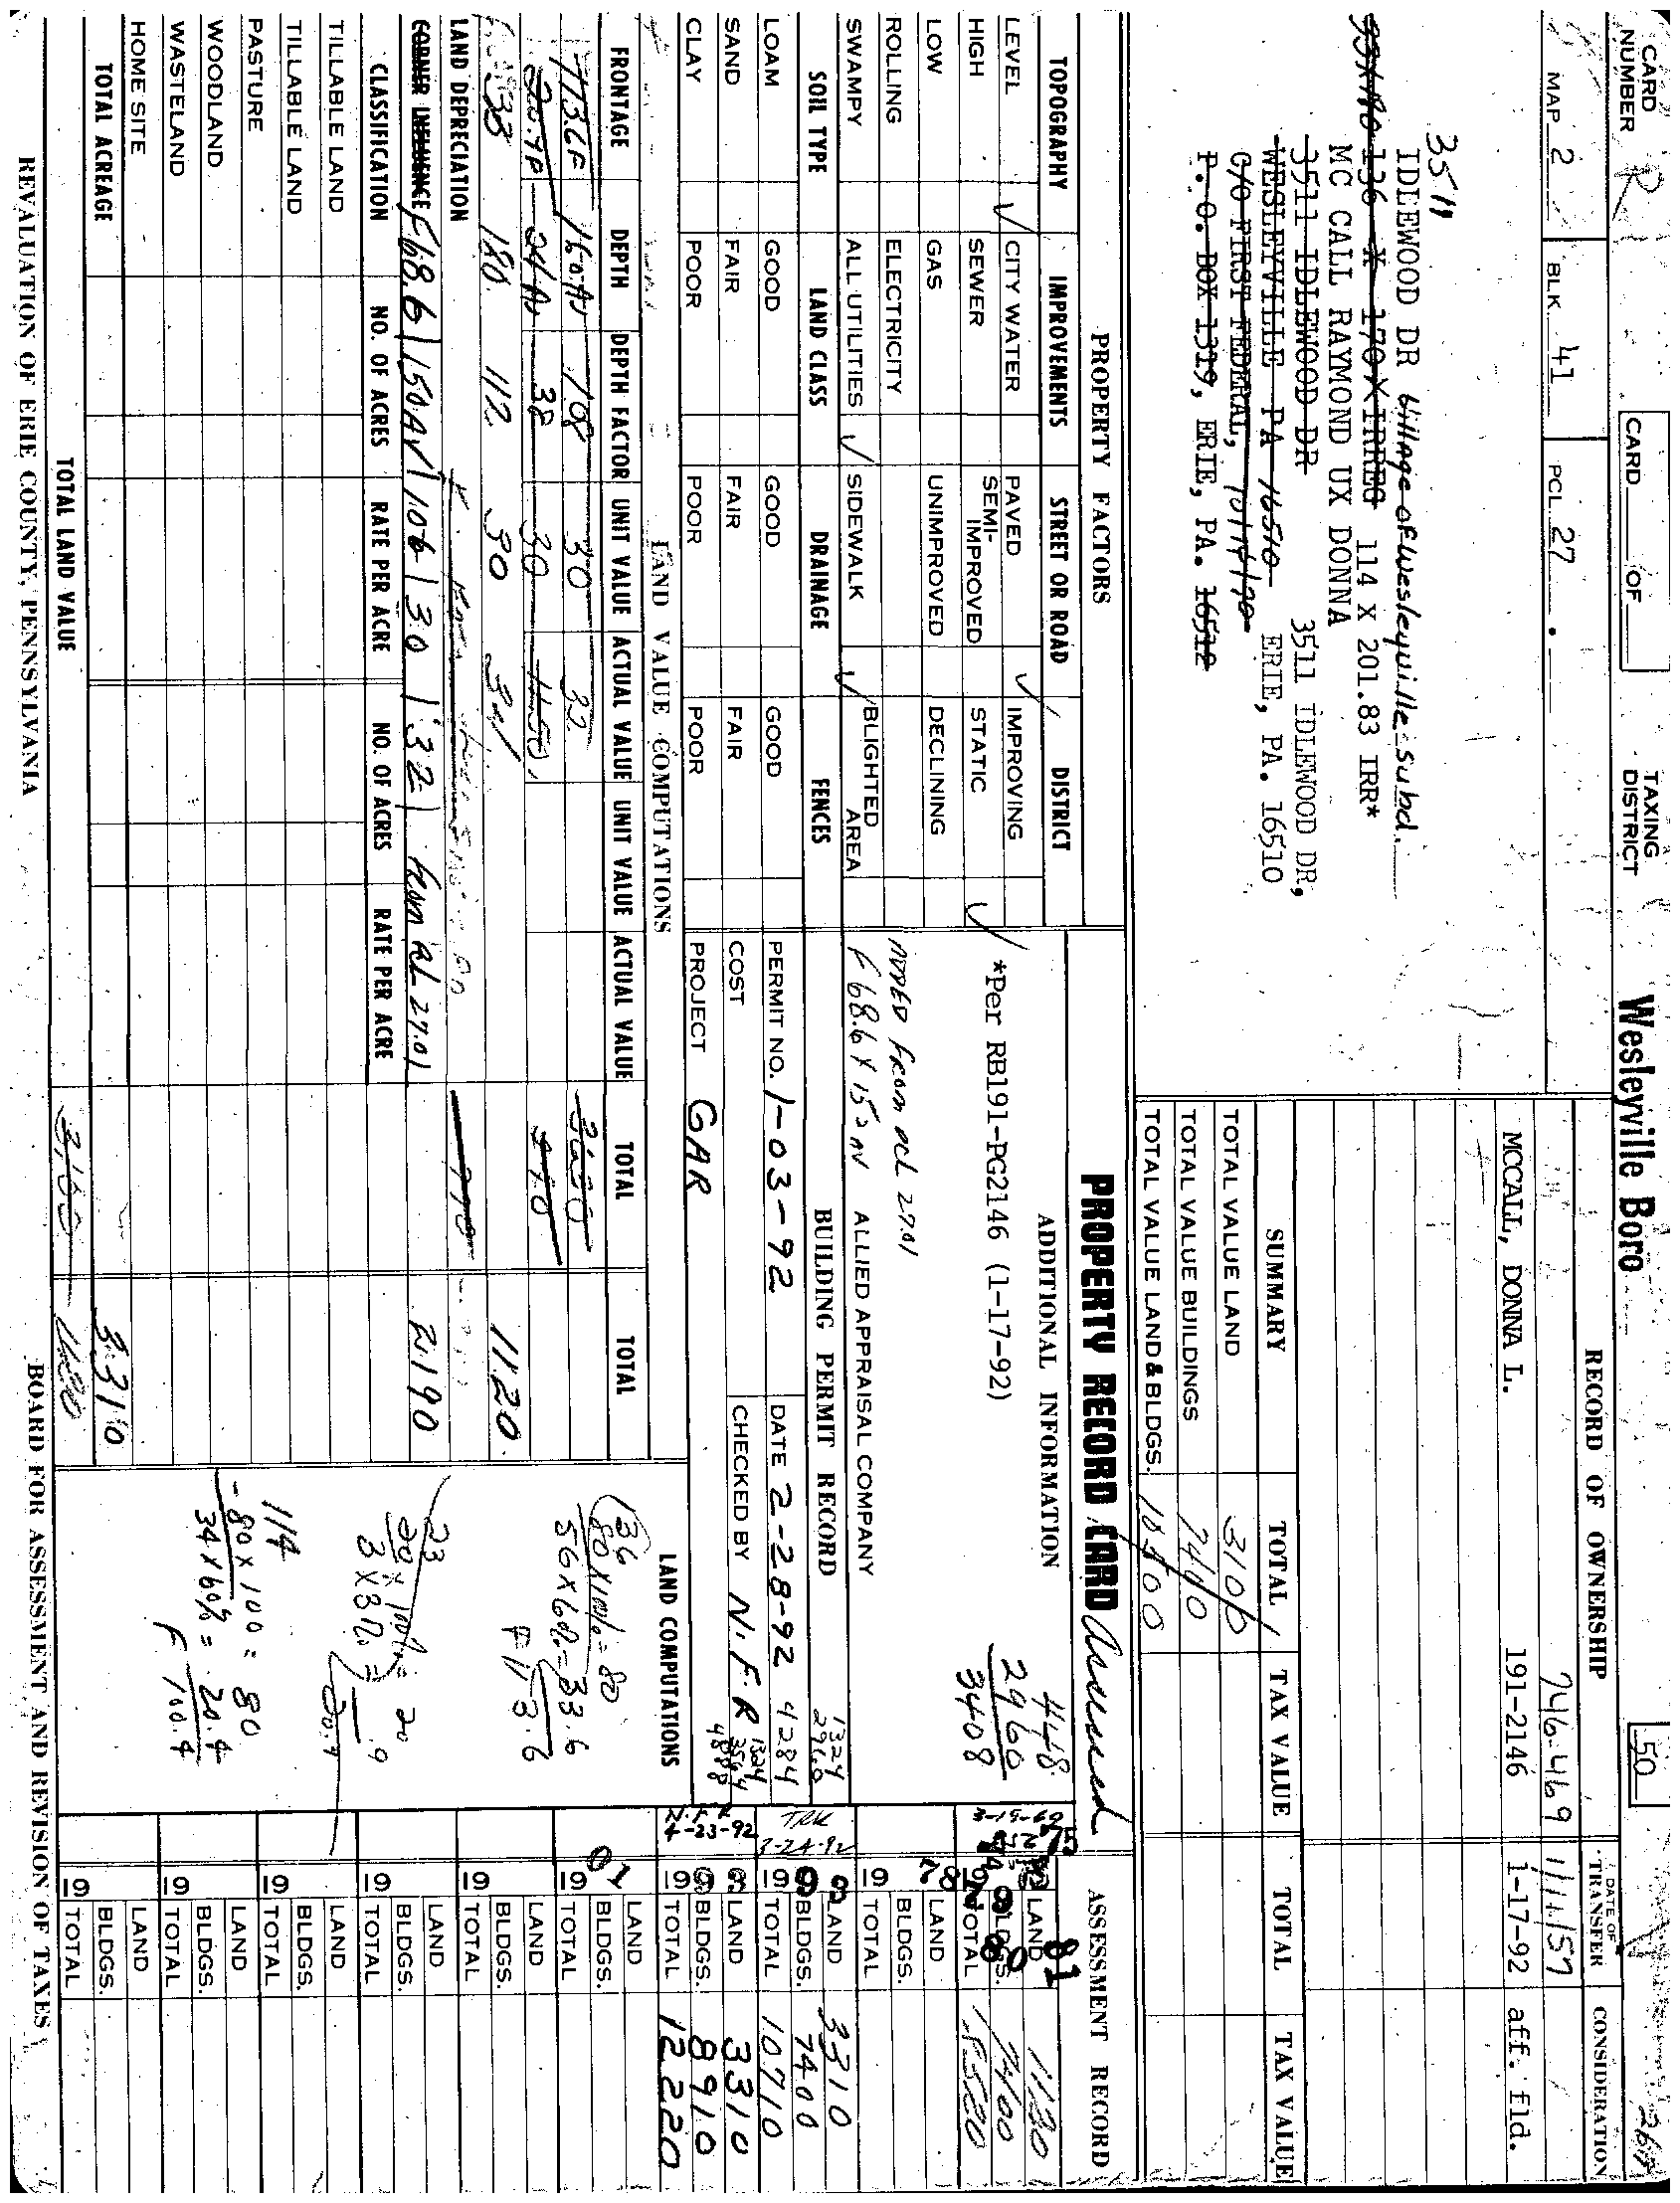 CARD NUMBER R
CARD OF
TAXING DISTRICT Wesleyville Boro
50
MAP 2 BLK. 41 PCL. 27
3511
IDLEWOOD DR Village of Wesleyville Subd.
136 X 170 X IRREG 114 X 201.83 IRR*
MC CALL RAYMOND UX DONNA
3511 IDLEWOOD DR 3511 IDLEWOOD DR,
WESLEYVILLE PA 16510 ERIE, PA. 16510
C/O FIRST FEDERAL,
P. O. BOX 1319, ERIE, PA. 16512
RECORD OF OWNERSHIP DATE OF TRANSFER CONSIDERATION
746-469 1/11/57
MCCALL, DONNA L. 191-2146 1-17-92 aff. fld.
SUMMARY TOTAL TAX VALUE TOTAL TAX VALUE
TOTAL VALUE LAND 3100
TOTAL VALUE BUILDINGS 7400
TOTAL VALUE LAND & BLDGS. 10500
PROPERTY RECORD CARD Assessed
PROPERTY FACTORS
TOPOGRAPHY IMPROVEMENTS STREET OR ROAD DISTRICT
LEVEL ✓ CITY WATER PAVED ✓ IMPROVING
HIGH SEWER SEMI-IMPROVED STATIC ✓
LOW GAS UNIMPROVED DECLINING
ROLLING ELECTRICITY
SWAMPY ALL UTILITIES ✓ SIDEWALK ✓ BLIGHTED AREA
SOIL TYPE LAND CLASS DRAINAGE FENCES
LOAM GOOD GOOD GOOD
SAND FAIR FAIR FAIR
CLAY POOR POOR POOR
ADDITIONAL INFORMATION
*Per RB191-PG2146 (1-17-92)
448
2960
3408
ADDED From pcl 27.01
F 68.6 X 150 AV
ALLIED APPRAISAL COMPANY
BUILDING PERMIT RECORD
1324
2960
PERMIT NO. 1-03-92 DATE 2-28-92 4284
COST CHECKED BY N.F.R
1324
3564
4888
PROJECT GAR
LAND VALUE COMPUTATIONS
FRONTAGE DEPTH DEPTH FACTOR UNIT VALUE ACTUAL VALUE UNIT VALUE ACTUAL VALUE TOTAL TOTAL
113.6F 160 AV 108 30 32
20.9F 24 AV 38 30 1150
180 112 30 1120
LAND DEPRECIATION
CORNER INFLUENCE F68.6 150AV 106 30 32 from pcl 27.01 2190
CLASSIFICATION NO. OF ACRES RATE PER ACRE NO. OF ACRES RATE PER ACRE
TILLABLE LAND
TILLABLE LAND
PASTURE
WOODLAND
WASTELAND
HOME SITE
TOTAL ACREAGE 3310
TOTAL LAND VALUE 3100
LAND COMPUTATIONS
136
80 X 100% = 80
56 X 60% = 33.6
F 113.6
23
20 X 100% = 20
20.9
114
-80 X 100 = 80
34 X 60% = 20.4
F 100.4
ASSESSMENT RECORD
3-15-69
LAND 1120
BLDGS. 7400
TOTAL
LAND
BLDGS.
19 TOTAL
TRK
LAND 3310
BLDGS. 7400
TOTAL 10710
N.F.R
4-23-92
LAND 3310
BLDGS. 8910
TOTAL 12220
01
LAND
BLDGS.
19 TOTAL
LAND
BLDGS.
19 TOTAL
LAND
BLDGS.
19 TOTAL
LAND
BLDGS.
19 TOTAL
LAND
BLDGS.
19 TOTAL
LAND
BLDGS.
19 TOTAL
REVALUATION OF ERIE COUNTY, PENNSYLVANIA
BOARD FOR ASSESSMENT AND REVISION OF TAXES